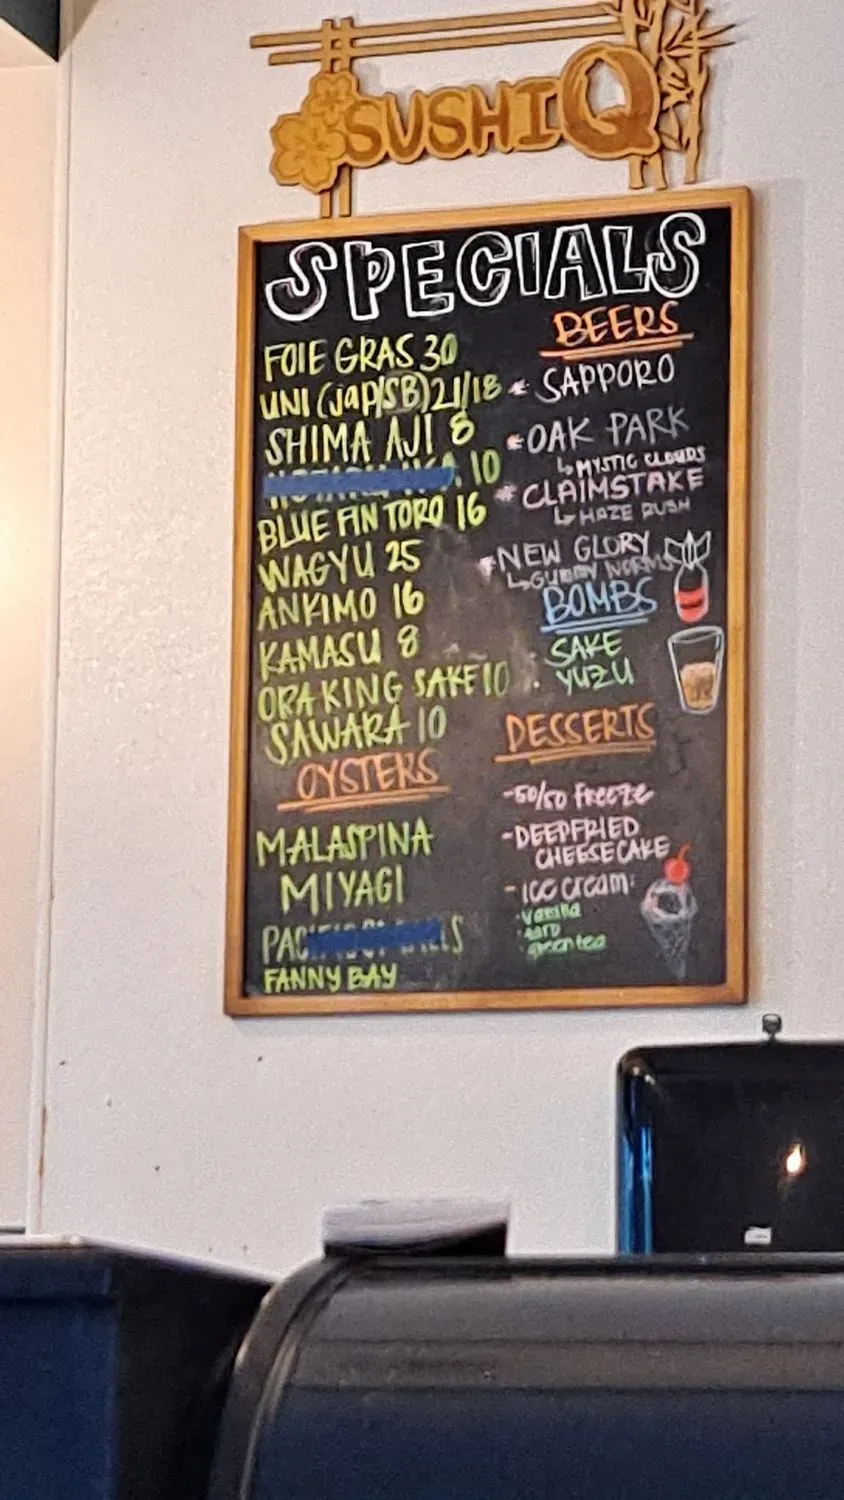 SUSHI Q
SPECIALS
FOIE GRAS 30
UNI (Jap/SB) 21/18
SHIMA AJI 8
10
BLUE FIN TORO 16
WAGYU 25
ANKIMO 16
KAMASU 8
ORA KING SAKE 10
SAWARA 10
OYSTERS
MALASPINA
MIYAGI
FANNY BAY
BEERS
SAPPORO
OAK PARK
↳ MYSTIC CLOUDS
CLAIMSTAKE
↳ HAZE RUSH
NEW GLORY
↳ GUMMY WORMS
BOMBS
SAKE
YUZU
DESSERTS
-50/50 Freeze
-DEEPFRIED
CHEESECAKE
-ice cream:
vanilla
green tea